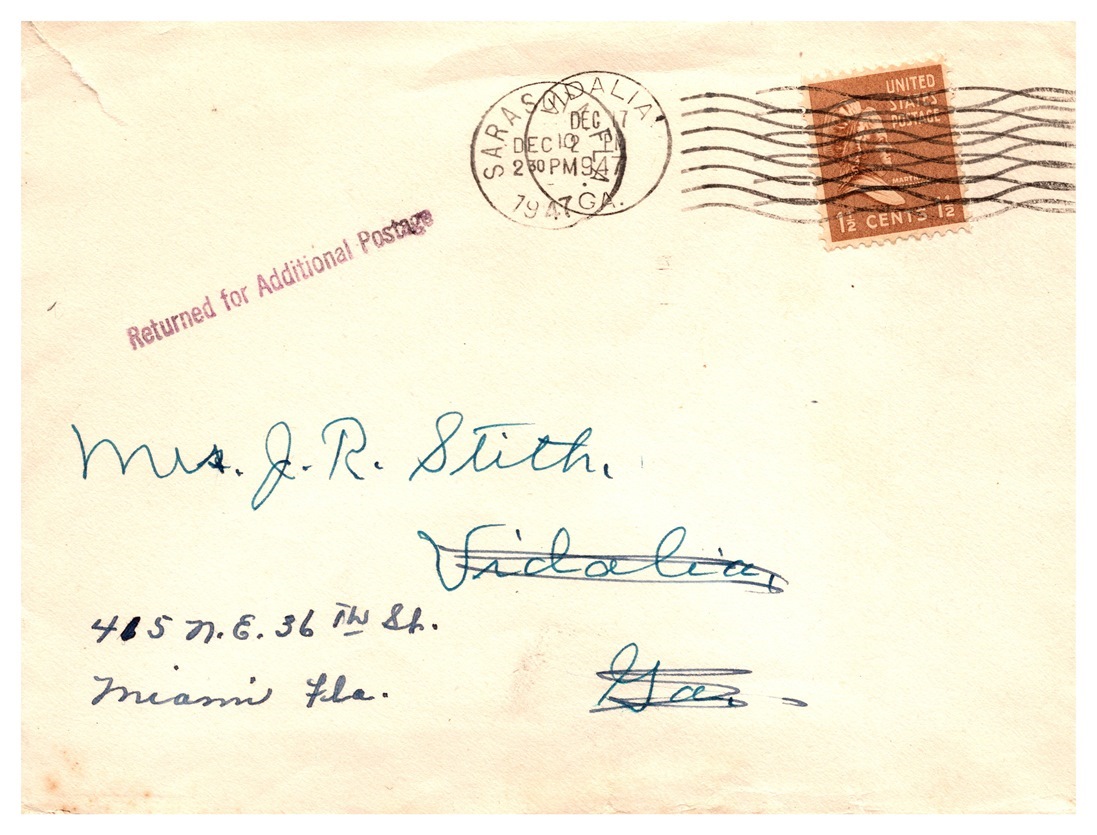 SARASOTA FLA.
DEC 10
2 30 PM
1947
VIDALIA
DEC 17
2 PM
1947
GA.
UNITED
STATES
POSTAGE
1½ CENTS 1½
Returned for Additional Postage
Mrs. J. R. Stith.
Vidalia,
Ga.
415 N.E. 36 TH St.
Miami Fla.